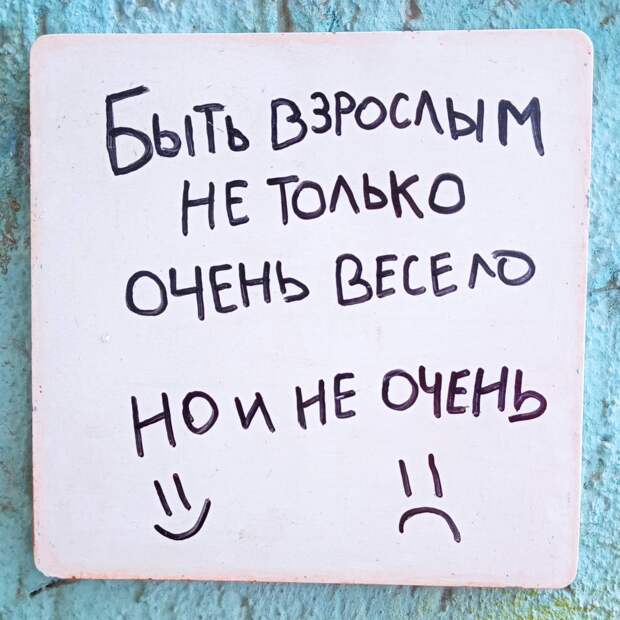 Быть взрослым
не только
очень весело
но и не очень